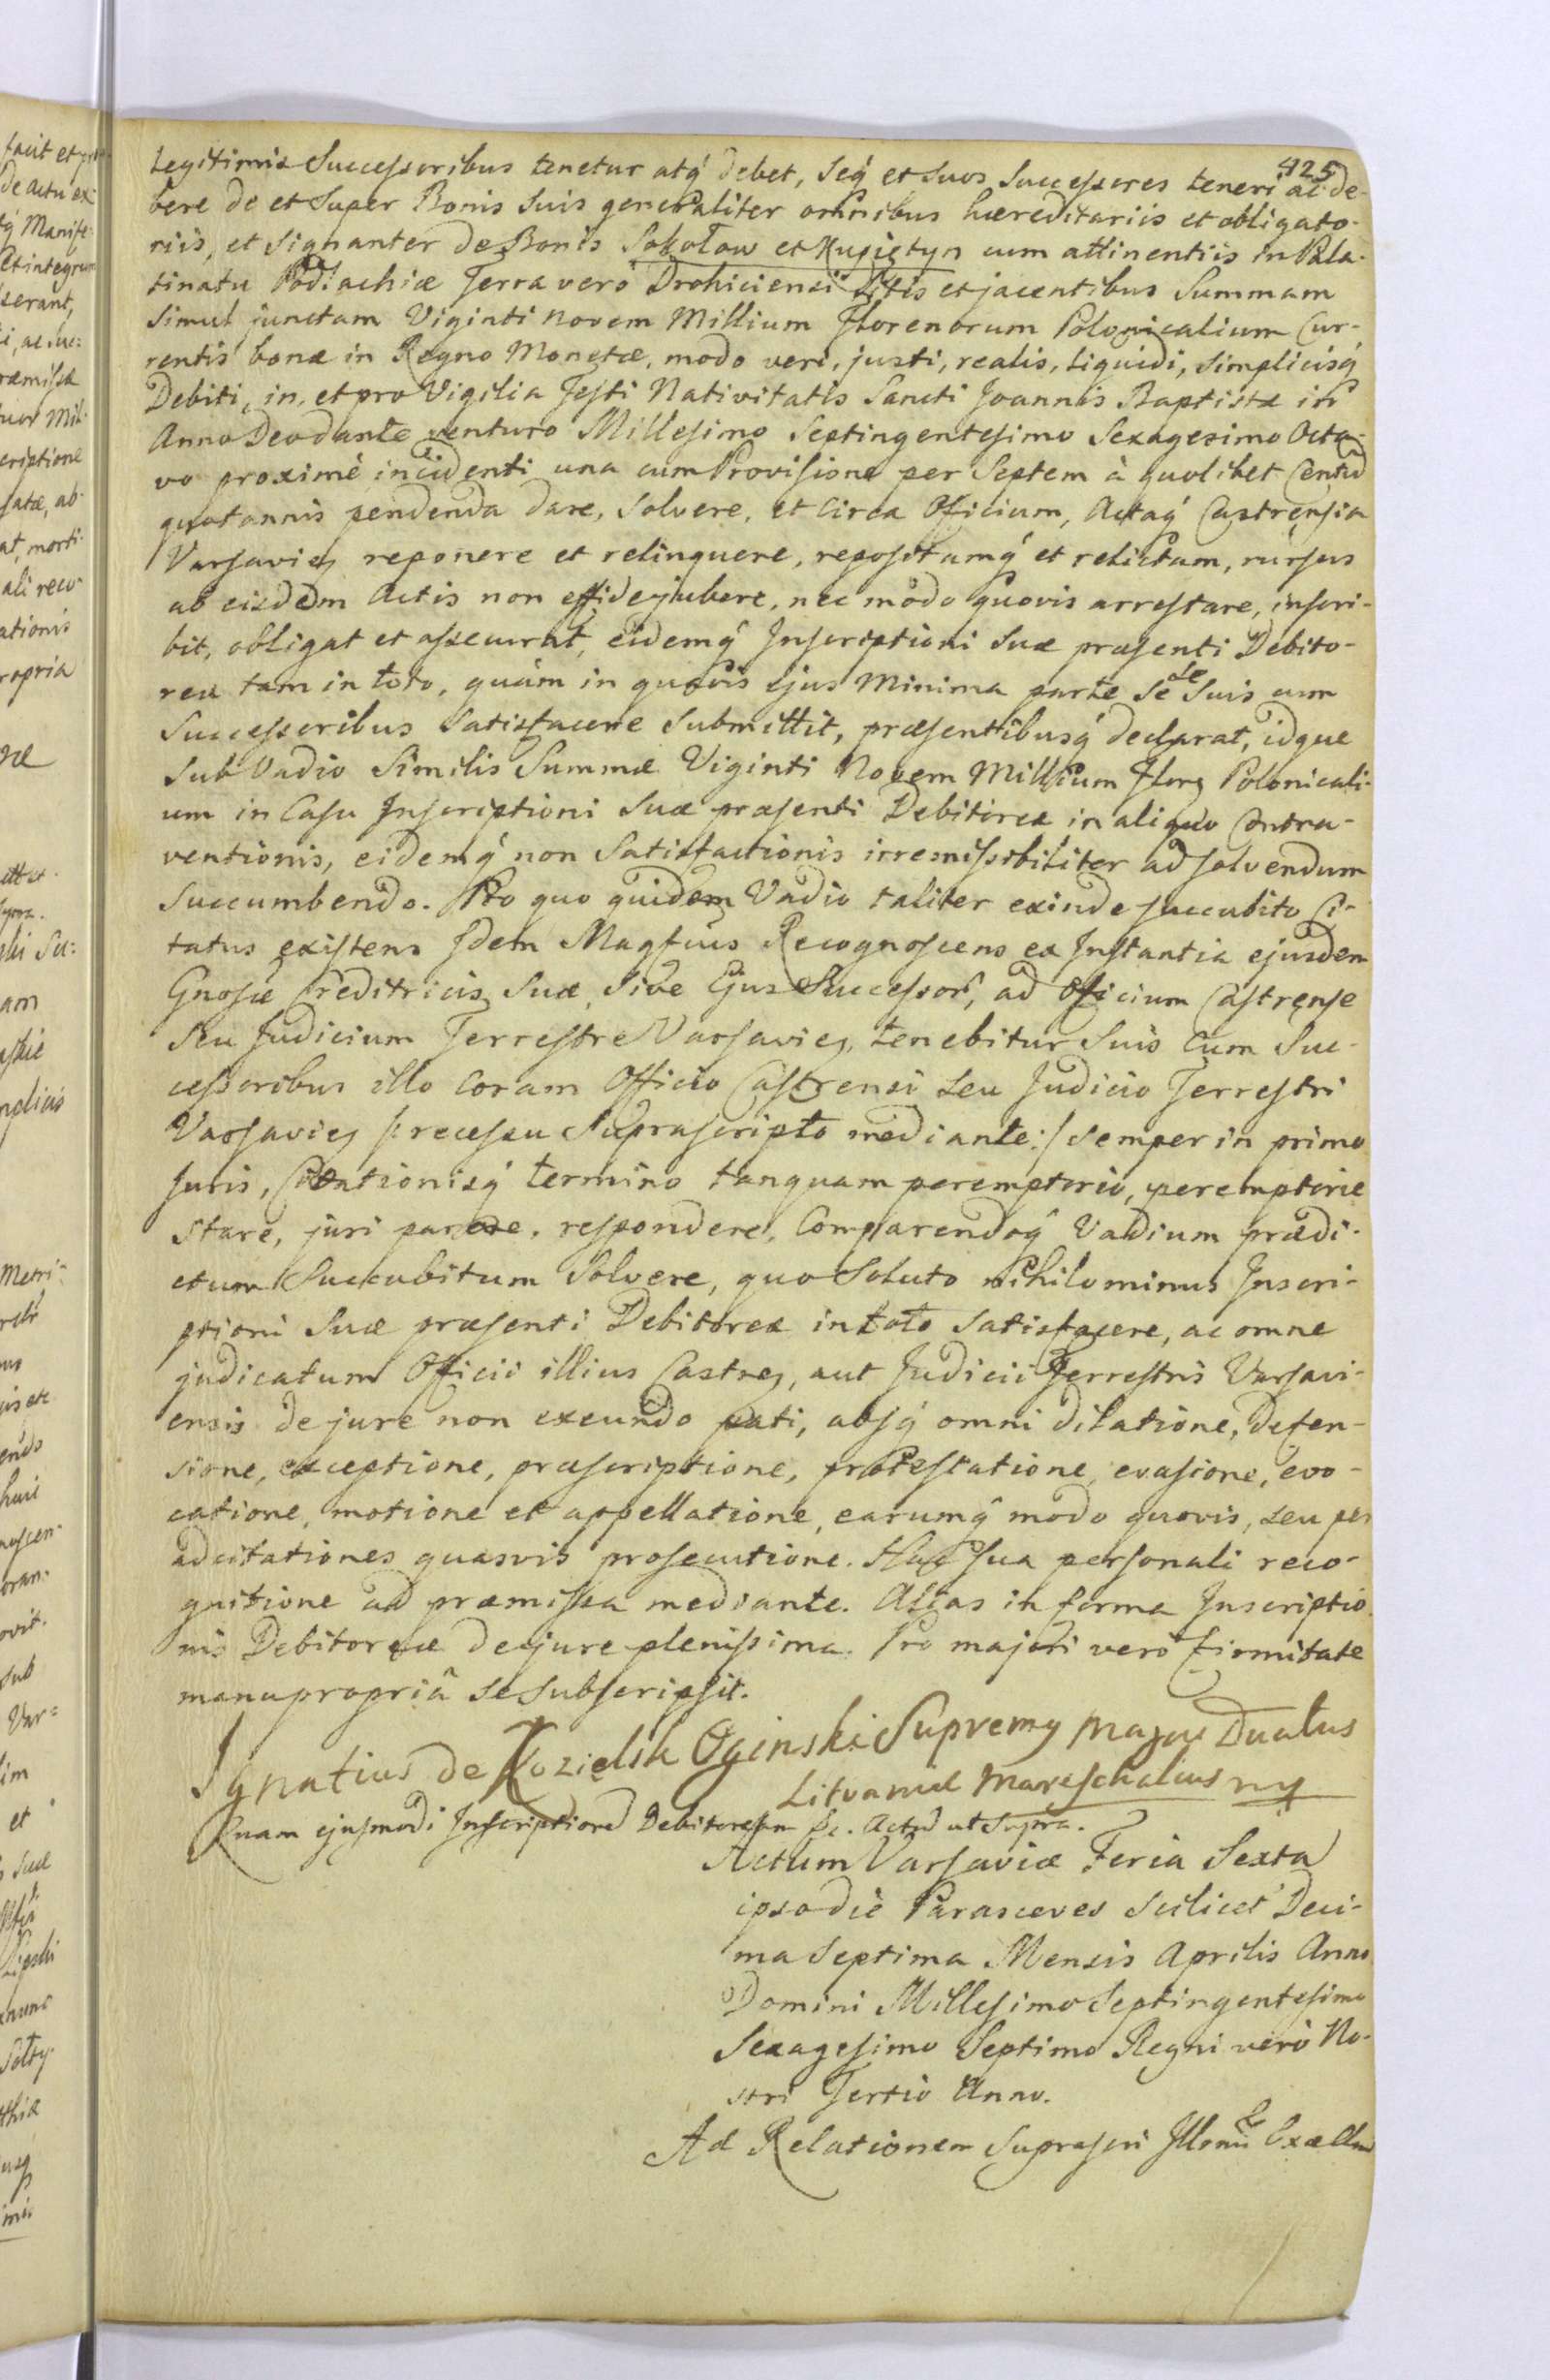 425
Legitimis Successoribus tenetur atq́ debet, Seq́ et Suos Successeres teneri ac de-
bere de et Super Bonis Suis generaliter omnibus hæreditariis et obligato-
riis, et Signanter de Bonis Sokołow et Kupiętyn cum attinentiis in Pala-
tinatu Podlachiæ Terra verò Drohiciensi Sitis et jacentibus Summam
Simul junctam Viginti Novem Millium Florenorum Polonicalium Cur-
rentis bonæ in Regno Monetæ, modo veri, justi, realis, liquidi, simplicisq́
Debiti, in, et pro Vigilia Festi Nativitatis Sancti Joannis Baptistæ in
Anno Deo dante venturo Millesimo Septingentesimo Sexagesimo Octa-
vo proximè incidenti una cum Provisione per Septem à quolibet Centũ
quotannis pendenda dare, Solvere, et Circa Officium, Actaq́ Castrensia
Varsavieṇ reponere et relinquere, repositamq́ et relictam, rursus
ab eisdem Actis non effidejubere, nec modo quovis arrestare, inscri-
bit, obligat et assecurat, eidemq́ Inscriptioni Suæ præsenti Debito-
reæ tam in toto, quàm in quavis ejus Minima parte Se de Suis cum
Successoribus Satisfacere Submittit, præsentibusq́ declarat, idque
Sub Vadio Similis Summæ Viginti Novem Millium Flors Polonicali-
um in Casu Inscriptioni Suæ præsenti Debitoreæ in aliquo Contra-
ventionis, eidemq́ non Satisfactionis irremissibiliter ad solvendum
Succumbendo. Pro quo quidem Vadio taliter exinde succubito Ci-
tatus existens Idem Magfcus Recognoscens ex Instantia ejusdem
Gnosæ Creditricis Suæ, Sive Ejus Successor̃, ad Officium Castrense
Seu Judicium Terrestre Varsavieṇ, tenebitur Suis Cum Suc-
cessoribus illo Coram Officio Castrensi seu Judicio Terrestri
Varsavieṇ /: recessu Suprascripto mediante :/ semper in primo
Juris, Citationisq́ termino tanquam peremptorio, peremptorie
Stare, juri parere, respondere, Comparendoq́ Vadium prædi-
ctum Succubitum Solvere, quo Soluto nihilominus Inscri-
ptioni Suæ præsenti Debitoreæ in toto satisfacere, ac omne
judicatum Officii illius Castreṇ, aut Judicii Terrestris Varsavi-
ensis de jure non exeundo pati, absq́ omni dilatione, Defen-
sione, exceptione, præscriptione, protestatione, evasione, evo-
catione, motione et appellatione, earumq́ modo quovis, seu per
adcitationes quasvis prosecutione. Hac sua personali reco-
gnitione ad præmissa mediante. Alias in forma Inscriptio-
nis Debitoreæ de jure plenissima. Pro majori verò firmitate
manu propriâ se subscripsit.
Ignatius de Kozielsk Oginski Supremq Magni Ducatus
Litvaniæ Mareschalcus mp
Quam ejusmodi Inscriptionẽ Debitoream &c. Actũ ut Supra.
Actum Varsaviæ Feria Sexta
ipso die Parasceves scilicet Deci-
ma Septima Mensis Aprilis Anno
Domini Millesimo Septingentesimo
Sexagesimo Septimo Regni verò No-
stri Tertio Anno.
Ad Relationem Suprascri Illonii & Excellm